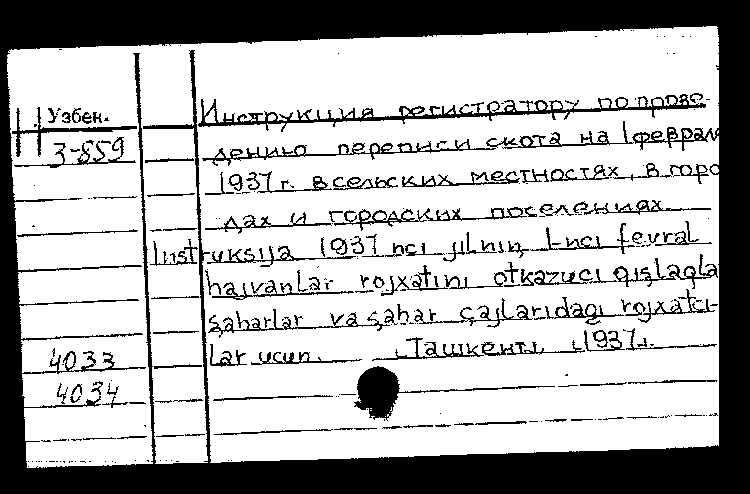 Узбек.
З-859
Инструкция регистратору по прове-
дению переписи скота на 1 февраля
1937 г. в сельских местностях, в горо
дах и городских поселениях.
Instruksija 1937 ncı jılnın, 1-ncı fevral
hajvanlar rojxatını otkazucı qışlaqla
şaharlar va şahar çajlarıdağı rojxatcı-
lar ucun. [Ташкент], [1937].
4033
4034